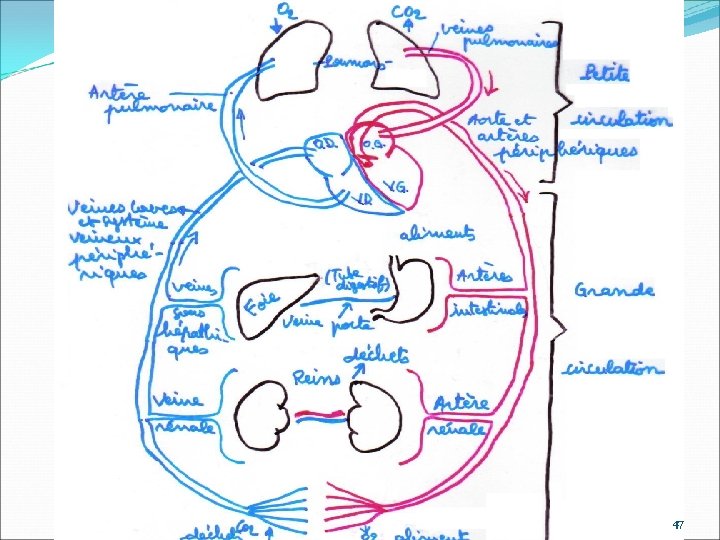 O2
CO2
veines
pulmonaires
Poumons
Petite
circulation
Artère
pulmonaire
Aorte et
artères
périphériques
O.D.
O.G.
V.G.
V.D.
Veines caves
et système
veineux
périphé-
riques
aliments
veines
sus
hépathi-
ques
Foie
(Tube
digestif)
veine porte
Artères
intestinales
Grande
circulation
déchets
Reins
Veine
rénale
Artère
rénale
déchets CO2
O2 aliments
47